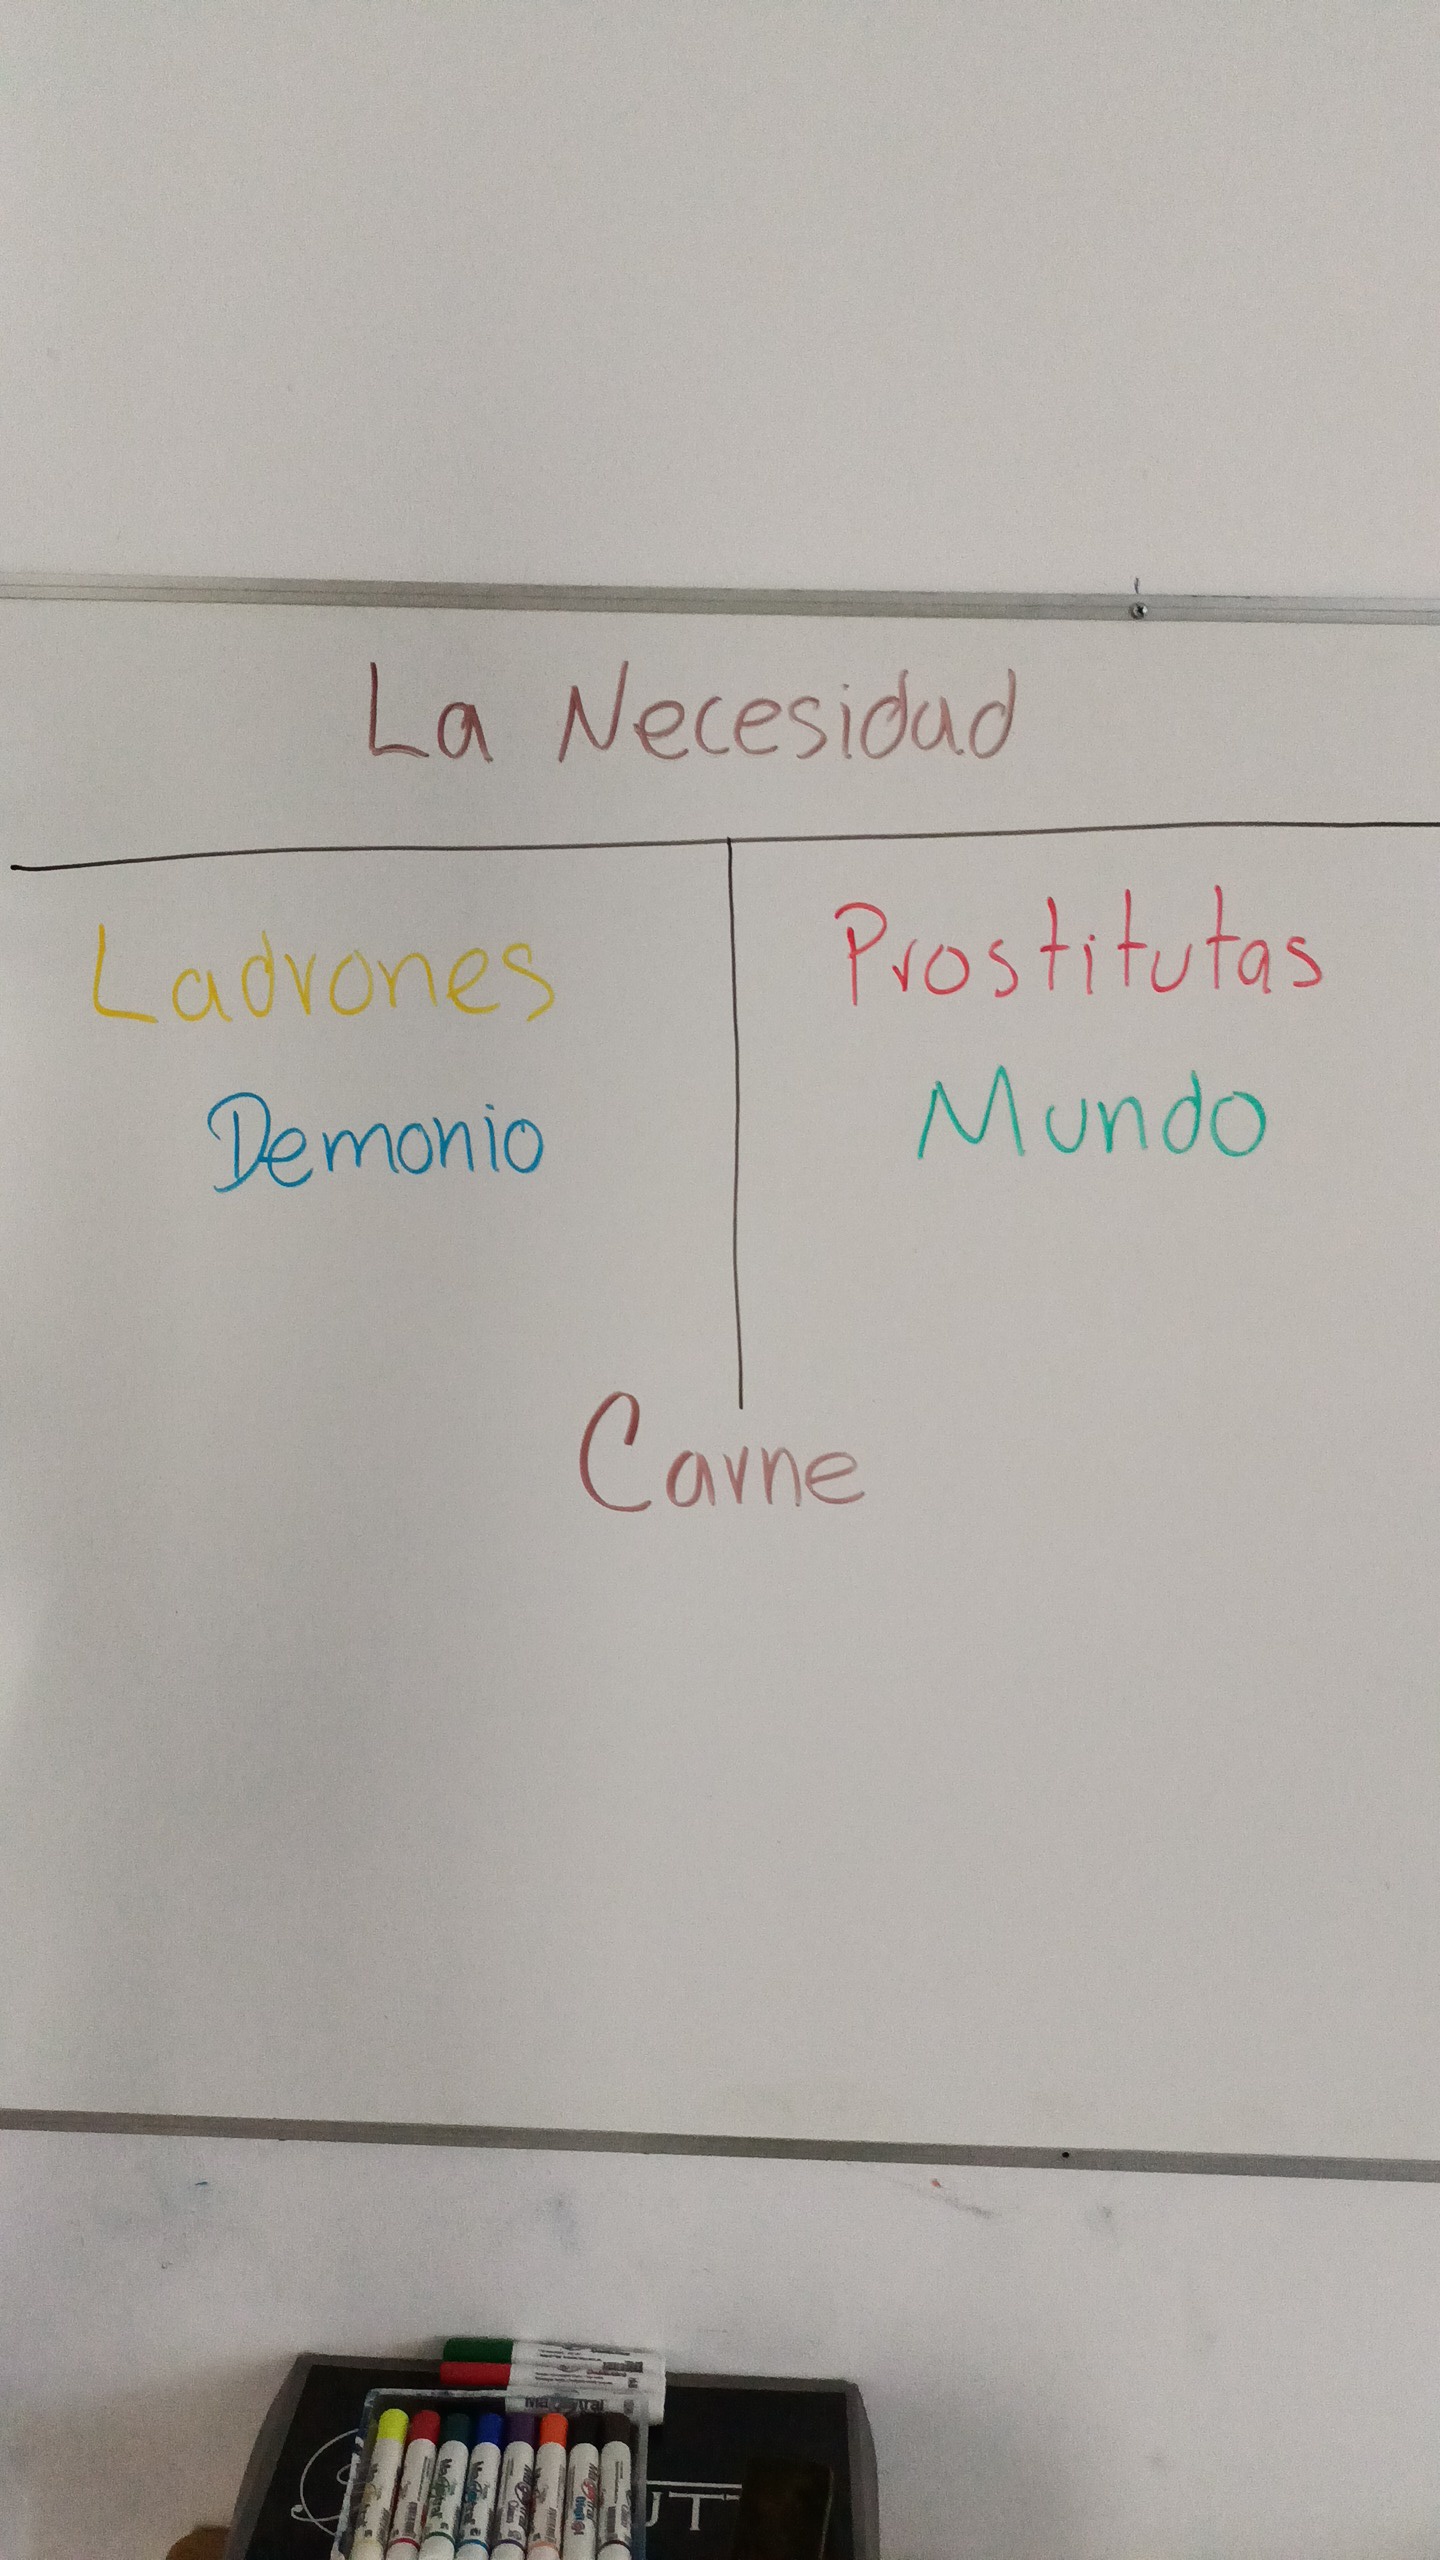 La Necesidad
Ladrones
Prostitutas
Demonio
Mundo
Carne